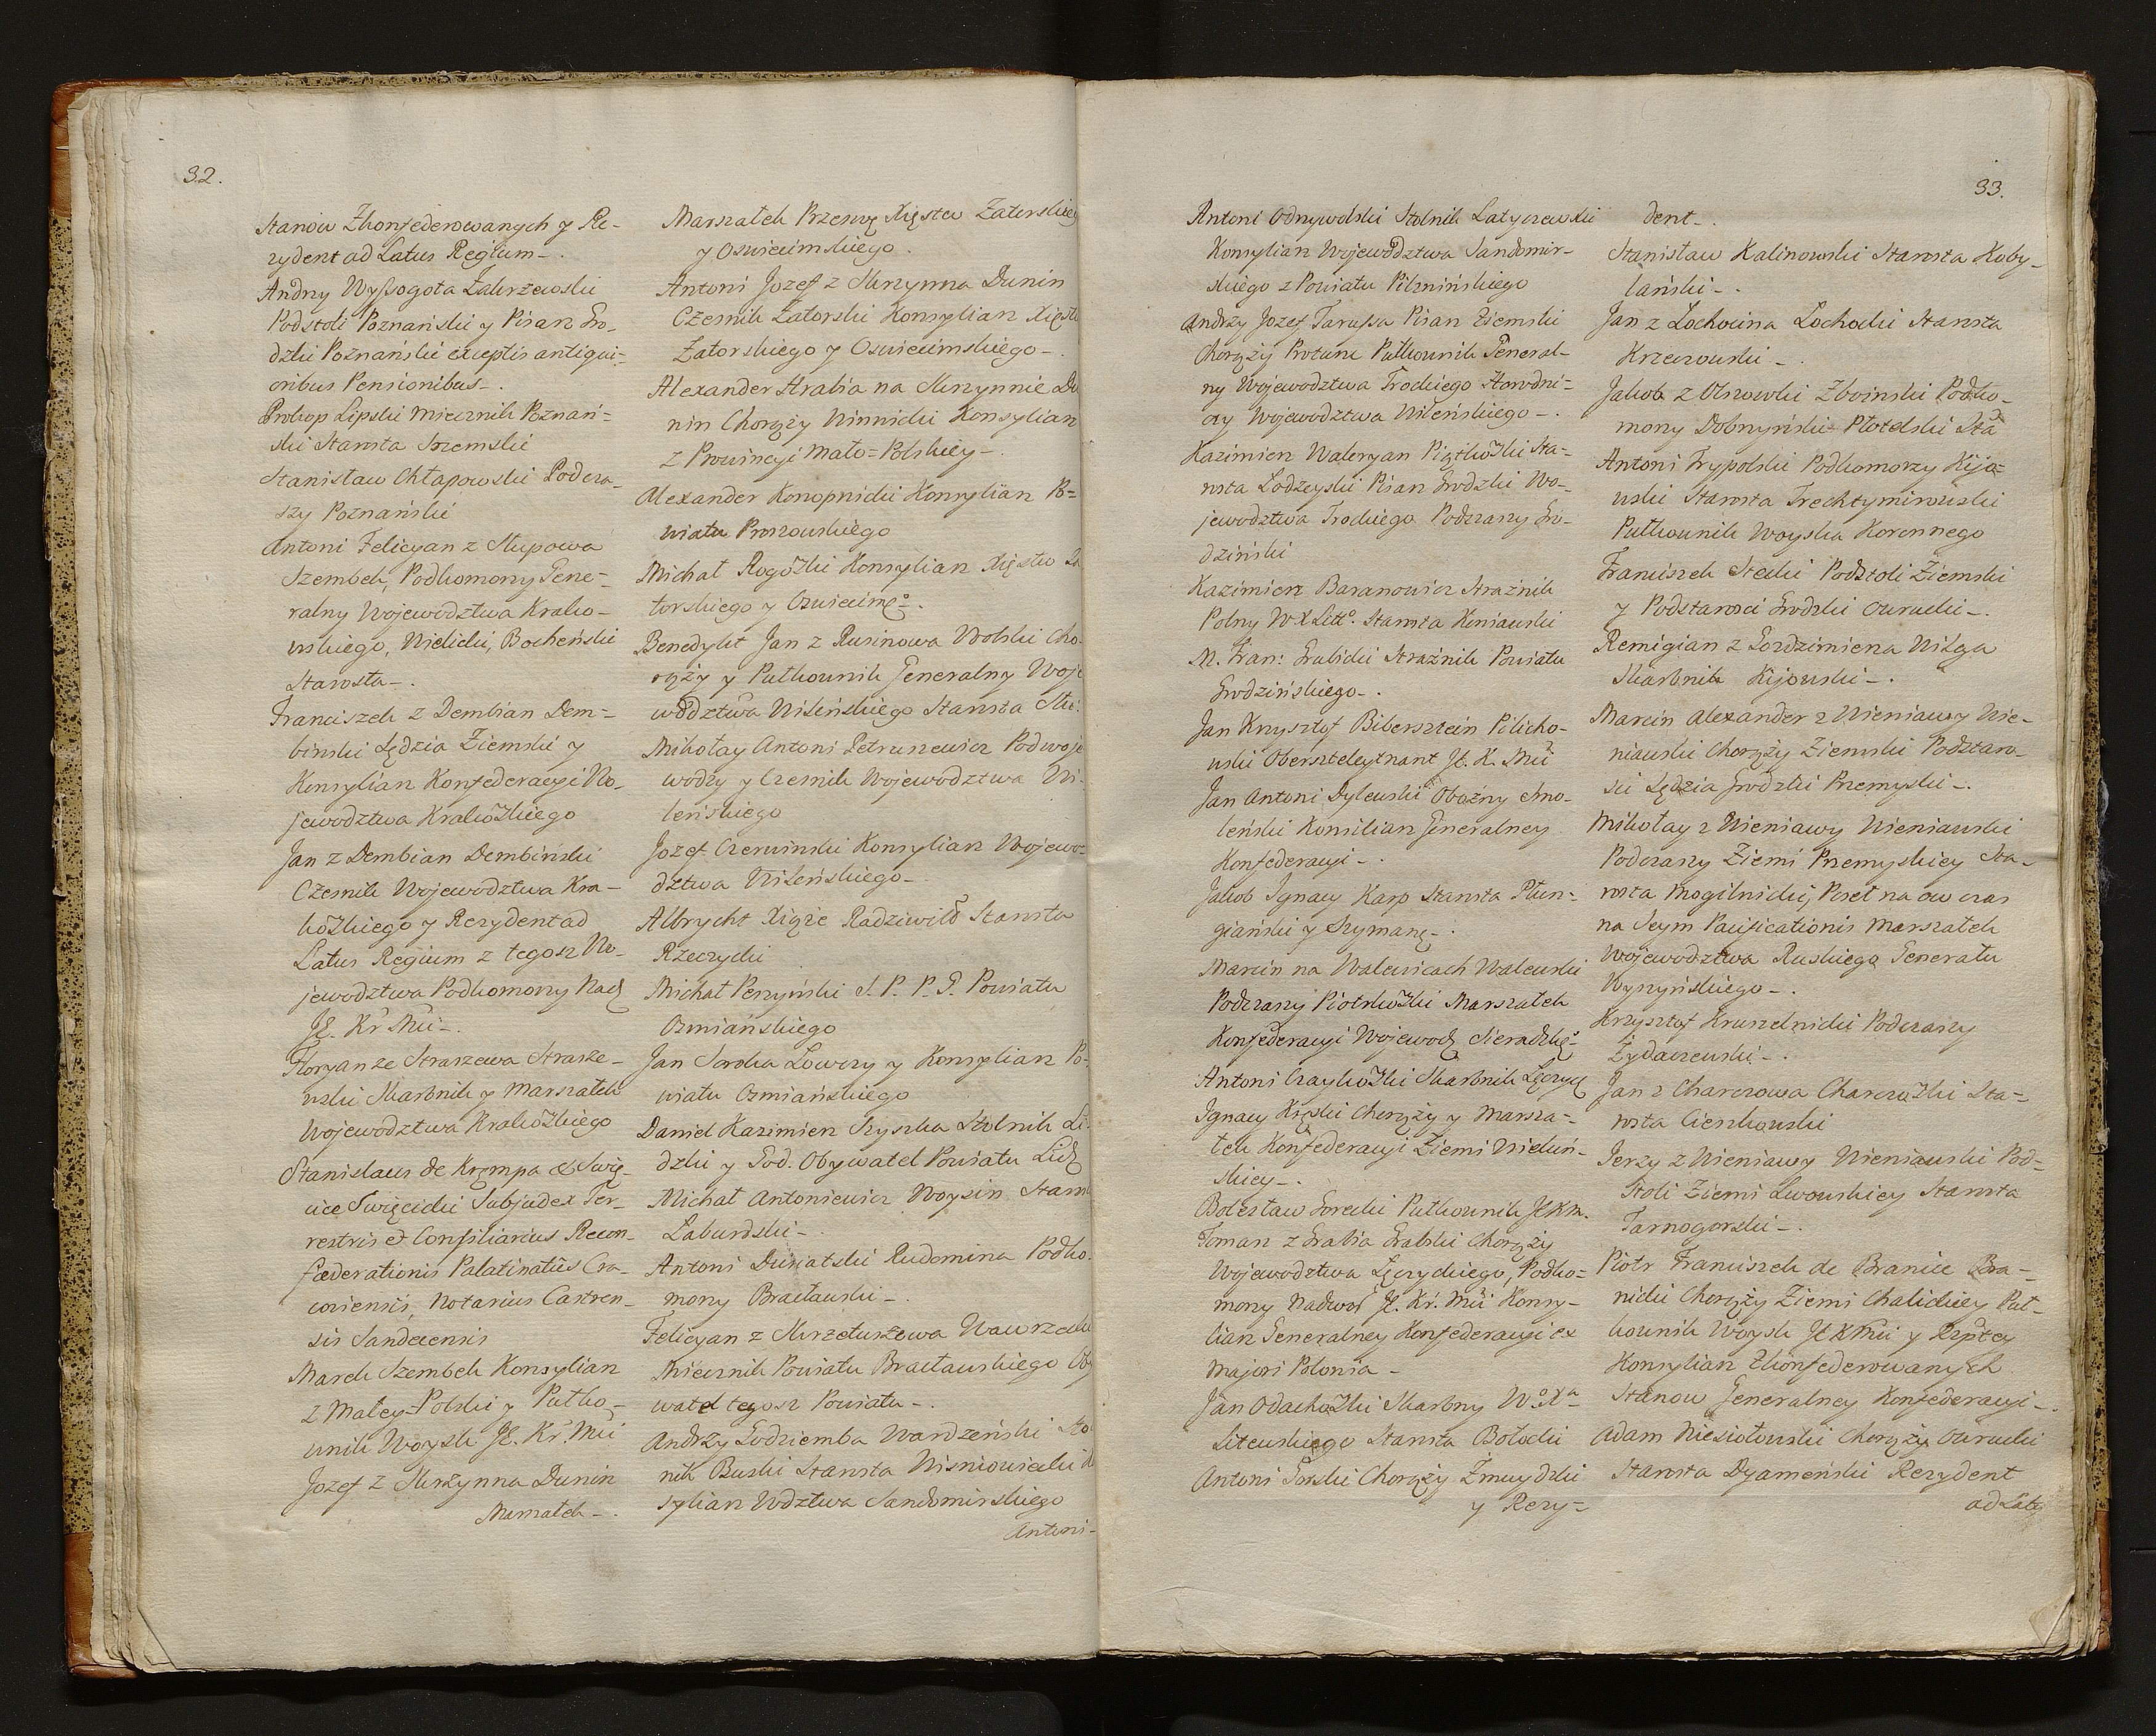 32.
Stanow Zkonfederowanych y Re-
zydent ad Latus Regium -.
Andrzy Wyssogota Zakrzewski
Podstoli Poznański y Pisarz Gro-
dzki Poznański exceptis antiqui-
oribus Pensionibus -.
Prokop Lipski Miecznik Poznań-
ski Starosta Szremski
Stanisław Chłapowski Podcza-
szy Poznański
Antoni Felicyan z Słupowa
Szembek, Podkomorzy Gene-
ralny Woiewodztwa Krako-
wskiego, Wielicki, Bocheński
Starosta -.
Franciszek z Dembian Dem-
binski Sędzia Ziemski y
Konsylian Konfederacyi Wo-
jewodztwa Krakowskiego
Jan z Dembian Dembiński
Czesnik Wojewodztwa Kra-
kowskiego y Rezydent ad
Latus Regium z tegosz Wo-
jewodztwa Podkomorzy Nad
JE. Kr Mći -.
Floryan ze Straszewa Strasze-
wski Skarbnik y Marszałek
Wojewodztwa Krakowskiego
Stanislaus de Krempa & Swię-
cice Swięcicki Subjudex Ter-
restris et Consiliarius Recon-
fæderationis Palatinatus Cra-
coviensis, Notarius Castren-
sis Sandecensis
Marek Szembek Konsylian
z Małey-Polski y Pułko-
wnik Woysk JE. Kr. Mći
Jozef z Skrzynna Dunin
Marszałek -.
Marszałek Przeswę Xięstw Zatorskieg
y Oswiecimskiego.
Antoni Jozef z Skrzynna Dunin
Czesnik Zatorski Konsylian Xięstw
Zatorskiego y Oswiecimskiego -.
Alexander Hrabia na Skrzynnie Du
nin Chorąży Winnicki Konsylian
z Prowincyi Mało=Polskiey -.
Alexander Konopnicki Konsylian Po=
wiatu Proszowskiego
Michał Rogowski Konsylian Xięstw Za
torskiego y Oswiecimgo -.
Benedykt Jan z Rusinowa Wolski Cho-
rąży y Pułkownik Generalny Woje
wodztwa Wileńskiego Starosta
Mikołay Antoni Petruszewicz Podwoje
wodzy y Czesnik Wojewodztwa Wi-
leńskiego
Jozef Czerwinski Konsylian Wojewo=
dztwa Wileńskiego -
Albrycht Xiąże Radziwiłł Starosta
Rzeczycki
Michał Peszyński S. P. P. P. Powiatu
Ozmiańskiego
Jan Soroka Łowczy y Konsylian Po-
wiatu Ozmiańskiego
Daniel Kazimierz Szyszka Stolnik Li-
dzki y Sod. Obywatel Powiatu Lidz
Michał Antoniewicz Woysin Staro
Łaburdski -.
Antoni Dusiatski Rudomina Podko-
morzy Bracławski -.
Felicyan z Skrzetuszewa Wawrzecki
Miecznik Powiatu Bracławskiego Oby
watel tegosz Powiatu -.
Andrzy Godziemba Wardzeński Sto
nik Buski Starosta Wisniowiecki Ko
sylian Wdztwa Sandomirskiego
Antoni-
33.
Antoni Odrzywolski Stolnik Latyczewski
Konsylian Wojewodztwa Sandomir-
skiego z Powiatu Pilznińskiego
Andrzy Jozef Tarussa Pisarz Ziemski
Chorąży Pułkownik General-
ny Wojewodztwa Trockiego Horodni-
czy Wojewodztwa Wileńskiego -.
Kazimierz Waleryan Piątkowski Sta-
rosta Łodzeyski Pisarz Grodzki Wo-
jewodztwa Trockiego Podczaszy Gro-
dziński
Kazimierz Baranowicz Straźnik
Polny WX Litto. Starosta Koniawski
M. Fran: Grabicki Straźnik Powiatu
Grodzińskiego -.
Jan Krzysztof Bibersztein Pilicho-
wski Oberszteleytnant JE. K. Mći
Jan Antoni Dylewski Obozny Smo-
leński Konsilian Generalney
Konfederacyi -.
Jakob Ignacy Karp Starosta Płun-
giański y Szymanę -.
Marcin na Walewicach Walewski
Podczaszy Piotrkowski Marszałek
Konfederacyi Wojewodz Sieradzkę
Antoni Czaykowski Skarbnik Łęczyc
Ignacy Kręski Chorąży y Marsza-
łek Konfederacyi Ziemi Wieluń-
skiey -.
Bolesław Gorecki Pułkownik JEKM.
Toman z Grabia Grabski Chorąży
Wojewodztwa Łęczyckiego, Podko-
morzy Nadwor JE. Kr. Mći Konsy-
lian Generalney Konfederacyi ex
Majori Polonia -
Jan Odachowski Skarbny Wo. Xa
Litewskiego Starosta Bołocki
Antoni Gorski Chorąży Zmuydzki
y Rezy-
dent -.
Stanisław Kalinowski Starosta Koby-
lański -.
Jan z Lochocina Lochocki Starosta
Krzeczowski -.
Jakob z Olszowki Zboinski Podko-
morzy Dobrzyński Płotelski Sta
Antoni Trypolski Podkomorzy Kijo=
wski Starosta Trechtymirowski
Pułkownik Woyska Koronnego
Franciszek Stecki Podstoli Ziemski
y Podstarosci Grodzki Owrucki -.
Remigian z Gordzimierza Wilga
Skarbnik Kijowski -.
Marcin Alexander z Wieniawy Wie-
niawski Chorąży Ziemski Podstaro-
sci Sędzia Grodzki Przemyski -.
Mikołay z Wieniawy Wieniawski
Podczaszy Ziemi Przemyskiey Sta-
rosta Mogilnicki, Poseł na ow czas
na Seym Pacificationis Marszałek
Wojewodztwa Ruskiego Generału
Wyszyńskiego -.
Krzysztof Kruszelnicki Podczaszy
Żydaczewski -.
Jan z Charczowa Charczowski Sta-
rosta Cieszkowski
Jerzy z Wieniawy Wieniawski Pod-
stoli Ziemi Lwowskiey Starosta
Tarnogorski -.
Piotr Franciszek de Branice Bra-
nicki Chorąży Ziemi Chalickiey Puł-
kownik Woysk JEKMći y Rzptey
Konsylian Zkonfederowanych
Stanow Generalney Konfederacyi -.
Adam Niesiołowski Chorąży Owrucki
Starosta Dyameński Rezydent
ad Latę